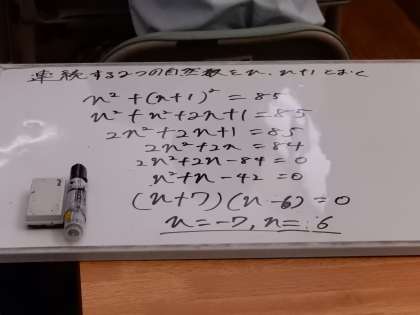 連続する2つの自然数をn、n+1とおくと
n²+(n+1)²=85
n²+n²+2n+1=85
2n²+2n+1=85
2n²+2n=84
2n²+2n-84=0
n²+n-42=0
(n+7)(n-6)=0
n=-7, n=6